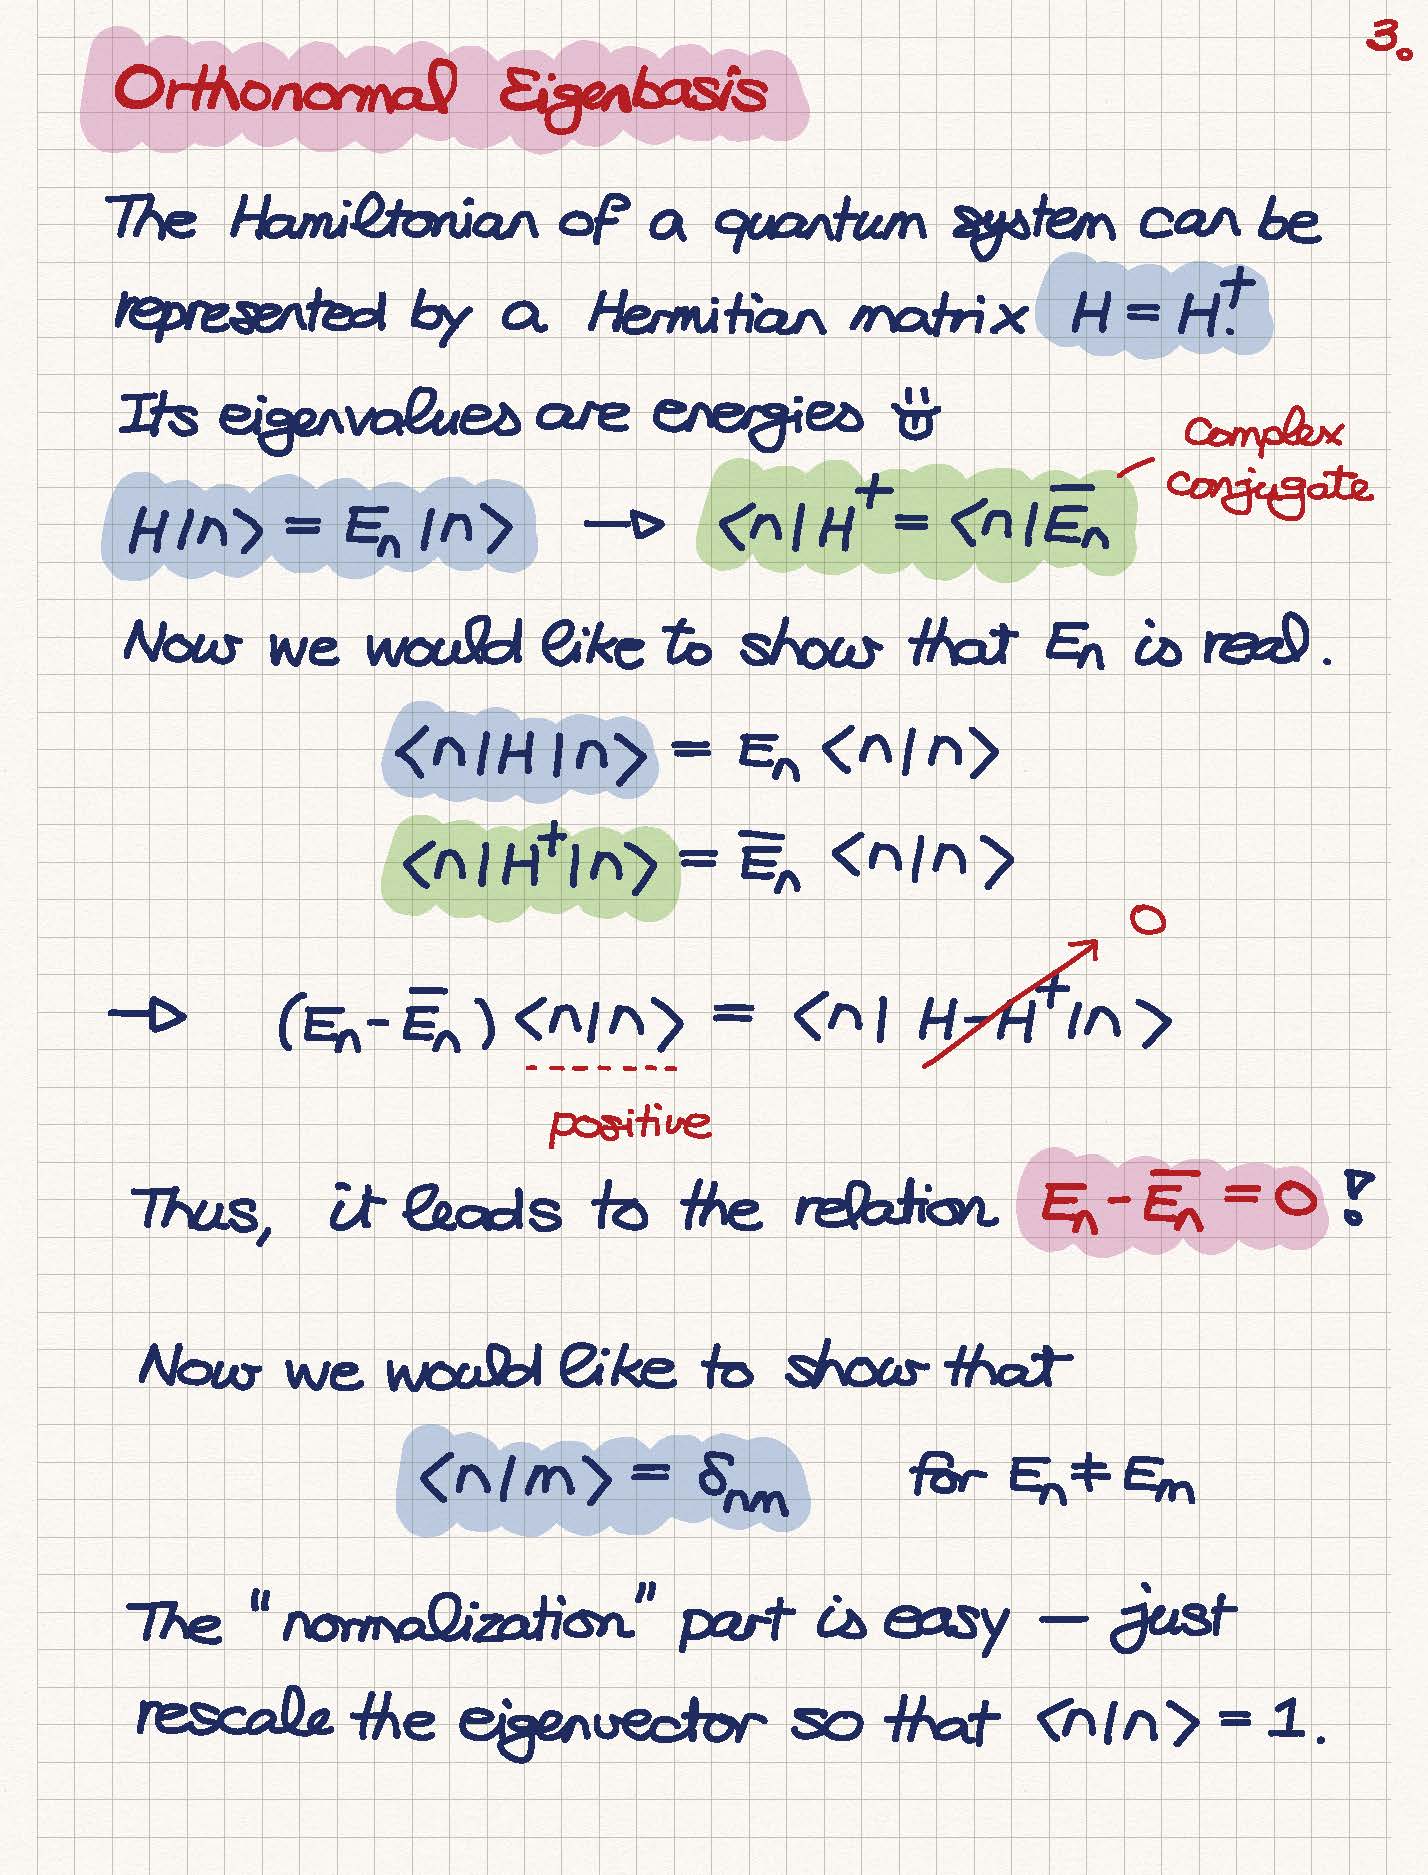 3.
Orthonormal Eigenbasis
The Hamiltonian of a quantum system can be
represented by a Hermitian matrix H = H†.
Its eigenvalues are energies
complex
conjugate
H|n⟩ = Eₙ|n⟩ → ⟨n|H† = ⟨n|E̅ₙ
Now we would like to show that Eₙ is real.
⟨n|H|n⟩ = Eₙ ⟨n|n⟩
⟨n|H†|n⟩ = E̅ₙ ⟨n|n⟩
0
→ (Eₙ - E̅ₙ) ⟨n|n⟩ = ⟨n| H - H† |n⟩
positive
Thus, it leads to the relation Eₙ - E̅ₙ = 0 !
Now we would like to show that
⟨n|m⟩ = δₙₘ for Eₙ ≠ Eₘ
The "normalization" part is easy — just
rescale the eigenvector so that ⟨n|n⟩ = 1.